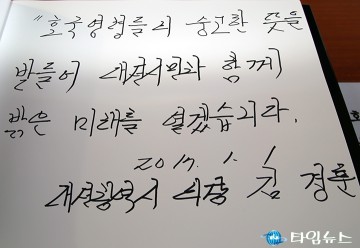 "호국영령들의 숭고한 뜻을
받들어 대전시민과 함께
밝은 미래를 열겠습니다.
2017. 1. 1
대전광역시 의장 김 경훈
타임뉴스